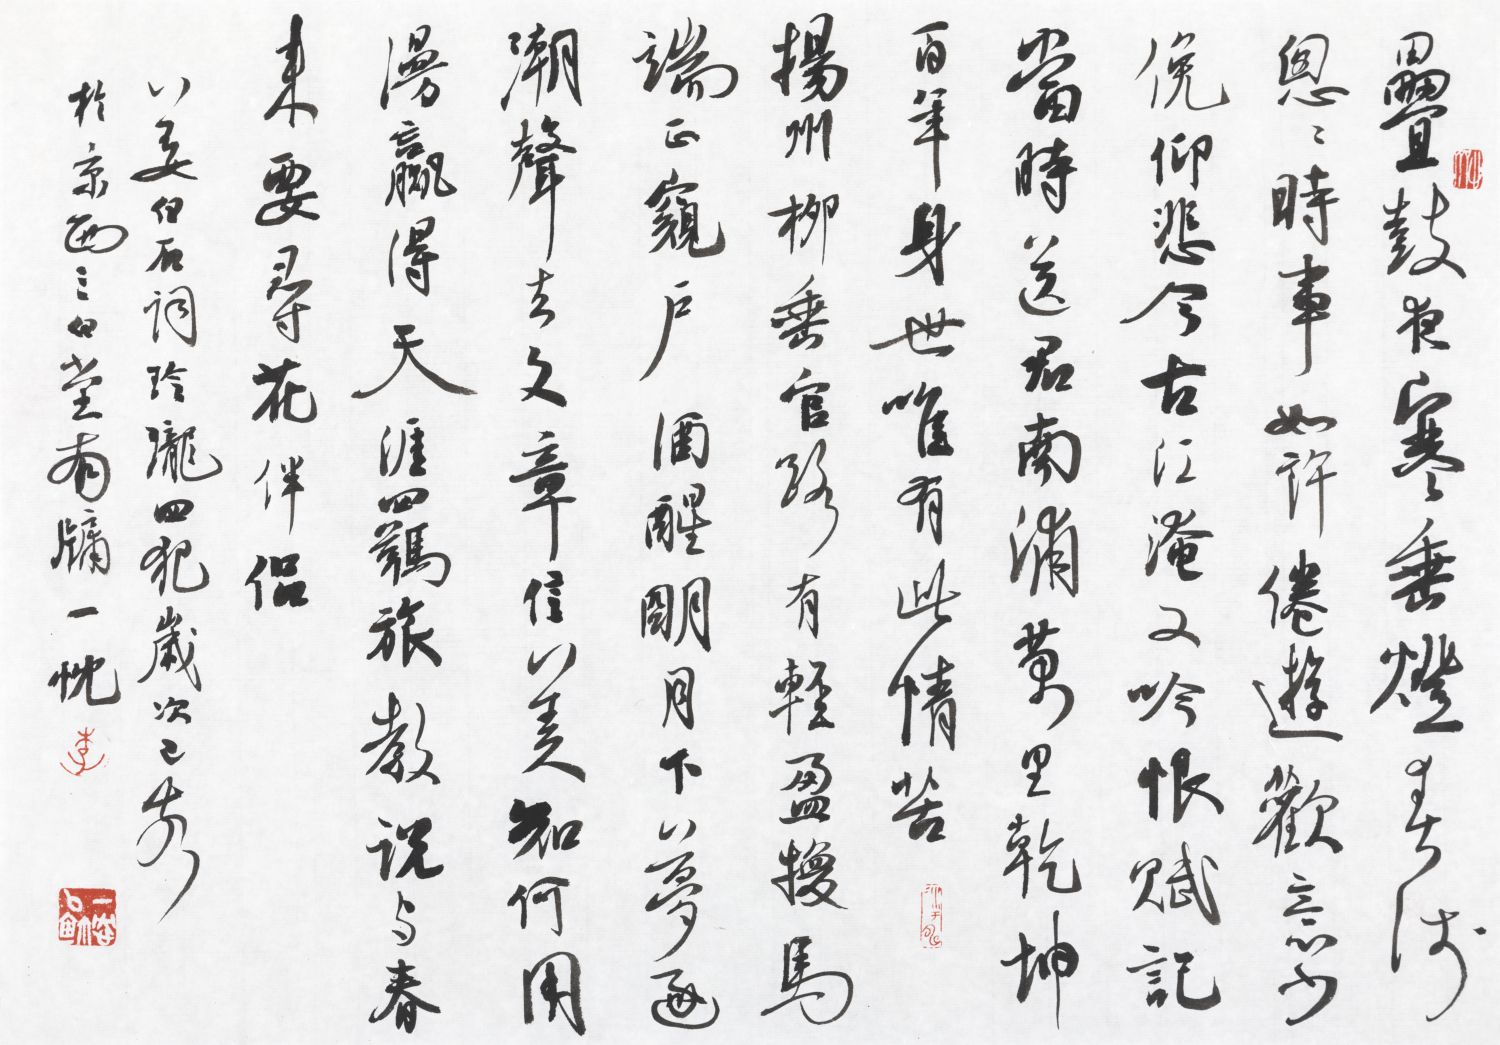 疊鼓夜寒垂燈春淺
恖〻時事如許倦遊歡意少
俛仰悲今古江淹又吟恨賦記
當時送君南浦萬里乾坤
百年身世唯有此情苦
揚州柳垂官路有輕盈換馬
端正窺戶酒醒朙月下夢逐
潮聲去文章信美知何用
漫贏得天涯羈旅教説与春
来要尋花伴侶
姜白石詞玲瓏四犯歲次己亥
於京西三白堂南牖一忱
李